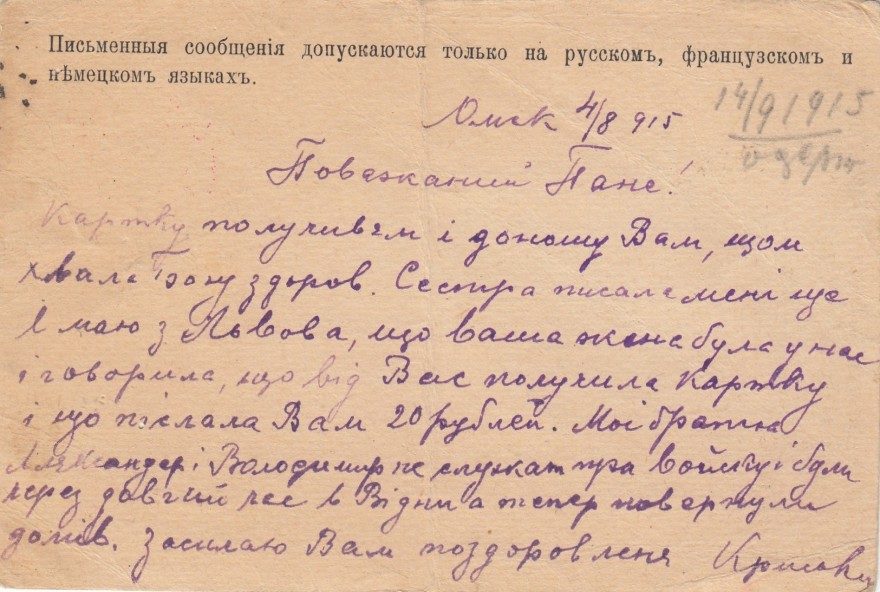 Письменныя сообщенія допускаются только на русскомъ, французскомъ и
нѣмецкомъ языкахъ.
14/9 1915
Омск 4/8 915
Поважаний Пане!
Картку получивєм і доношу Вам, щом
хвала Богу здоров. Сестра писала мені ще
маю з Львова, що ваша жена була у нас
і говорила, що від Вас получила картку
і що післала Вам 20 рублей. Мої братя
Александер і Володимир не служат при войску і були
через довгий час в Відни а тепер повернули
домів. Засилаю Вам поздоровленя